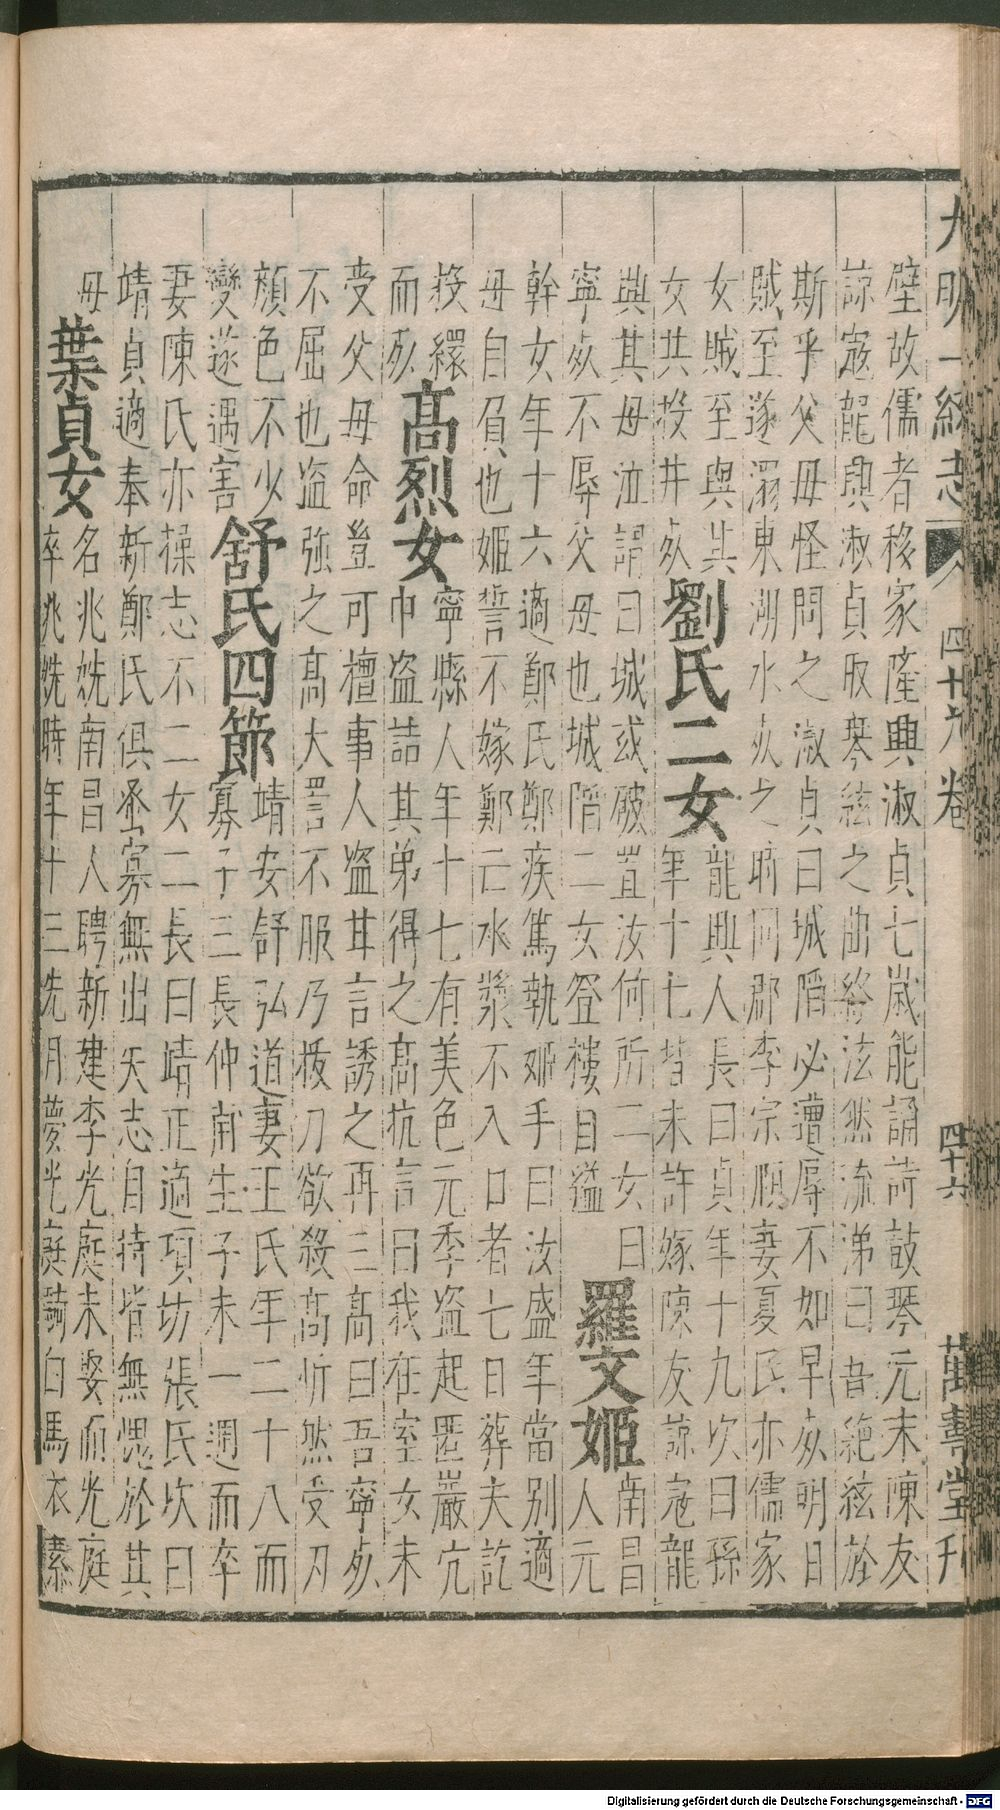 大明一統志 卷四十九 四十六 萬壽堂刊
壁故儒者移家隆興淑貞七歲能誦詩鼓琴元末陳友
諒寇龍興淑貞取琴絃之曲終泫然流涕曰吾絕絃於
斯乎父母怪問之淑貞曰城陷必遭辱不如早死明日
賊至遂溺東湖水死之時同郡李宗頤妻夏氏亦儒家
女賊至與其
女共投井死
劉氏二女
龍興人長曰貞年十九次曰孫
年十七皆未許嫁陳友諒寇龍
興其母泣謂曰城或破置汝何所二女曰
寧死不辱父母也城陷二女登樓自縊
羅文姬
南昌
人元
幹女年十六適鄭氏鄭疾篤執姬手曰汝盛年當別適
母自負也姬誓不嫁鄭亡水漿不入口者七日葬夫訖
投繯
而死
高烈女
寧縣人年十七有美色元季盜起匿巖穴
中盜詰其弟得之高抗言曰我在室女未
受父母命豈可擅事人盜甘言誘之再三高曰吾寧死
不屈也盜強之高大詈不服乃拔刀欲殺高忻然受刃
顏色不少
變遂遇害
舒氏四節
靖安舒弘道妻王氏年二十八而
寡子三長仲甫生子未一週而卒
妻陳氏亦操志不二女二長曰靖正適項坊張氏次曰
靖貞適奉新鄭氏俱蚤寡無出矢志自持皆無愧於其
母
葉貞女
名兆姺南昌人聘新建李光庭未娶而光庭
卒兆姺時年十三先月夢光庭騎白馬衣素
Digitalisierung gefördert durch die Deutsche Forschungsgemeinschaft - DFG